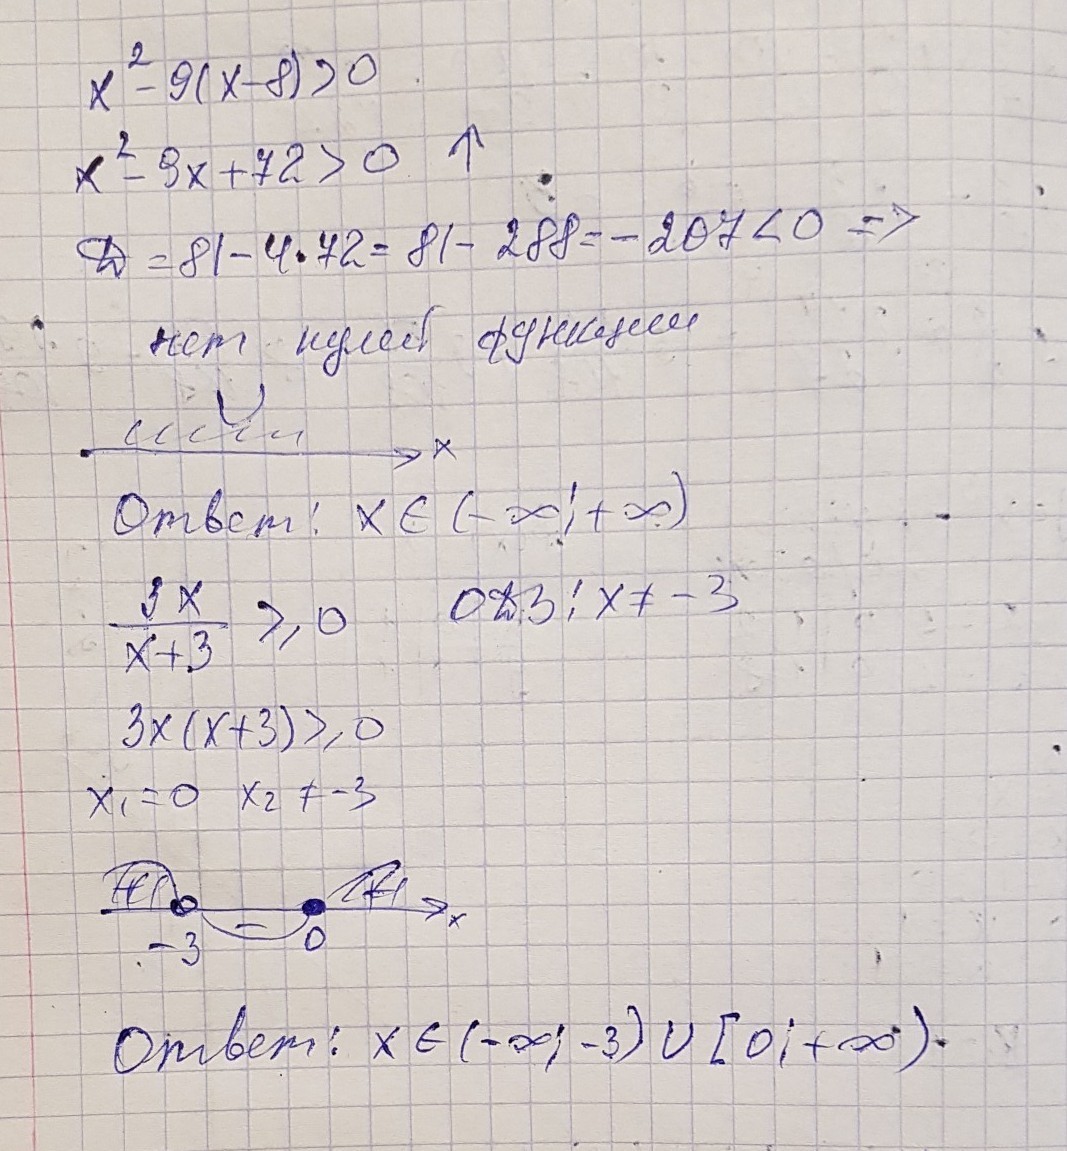 x² - 9(x-8) > 0
x² - 9x + 72 > 0 ↑
D = 81 - 4·72 = 81 - 288 = -207 < 0 =>
нет нулей функции
x
Ответ: x ∈ (-∞; +∞)
3x / x+3 ≥ 0 ОДЗ: x ≠ -3
3x(x+3) ≥ 0
x₁ = 0 x₂ ≠ -3
+ - + x
-3 0
Ответ: x ∈ (-∞; -3) ∪ [0; +∞).